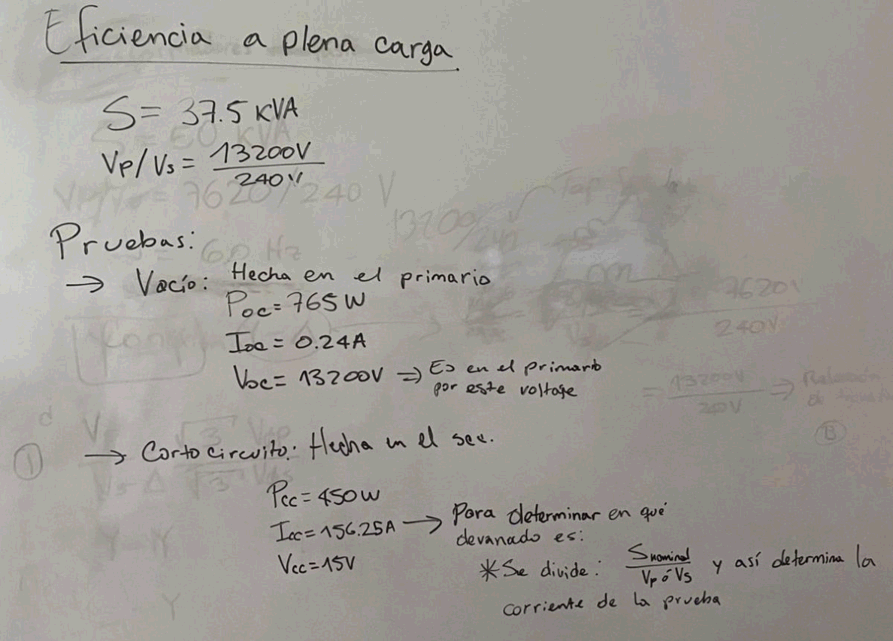 Eficiencia a plena carga
S = 37.5 KVA
Vp/Vs = 13200V / 240V
Pruebas:
→ Vacío: Hecha en el primario
Poc = 765W
Ioc = 0.24A
Voc = 13200V ⇒ Es en el primario
por este voltage
→ Corto circuito: Hecha en el sec.
Pcc = 450W
Icc = 156.25A → Para determinar en qué
devanado es:
Vcc = 15V
* Se divide: Snominal / Vp ó Vs y así determina la
corriente de la prueba
S = 50 KVA
Vp/Vs = 7620/240 V
60 Hz
13200/240
7620V
240V
= 13200V / 240V ⇒ Relación